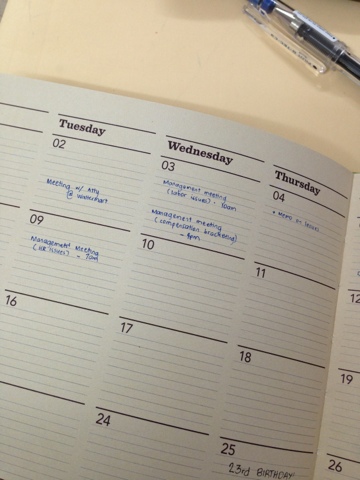 Tuesday
Wednesday
Thursday
02
03
04
Meeting w/ Atty
@
Management meeting
(labor issues) - 10am
Management meeting
(compensation bracketing)
- 4pm
* Memo on
09
10
11
12
Management Meeting
(HR issues) - 9am
16
17
18
19
24
25
26
23rd BIRTHDAY